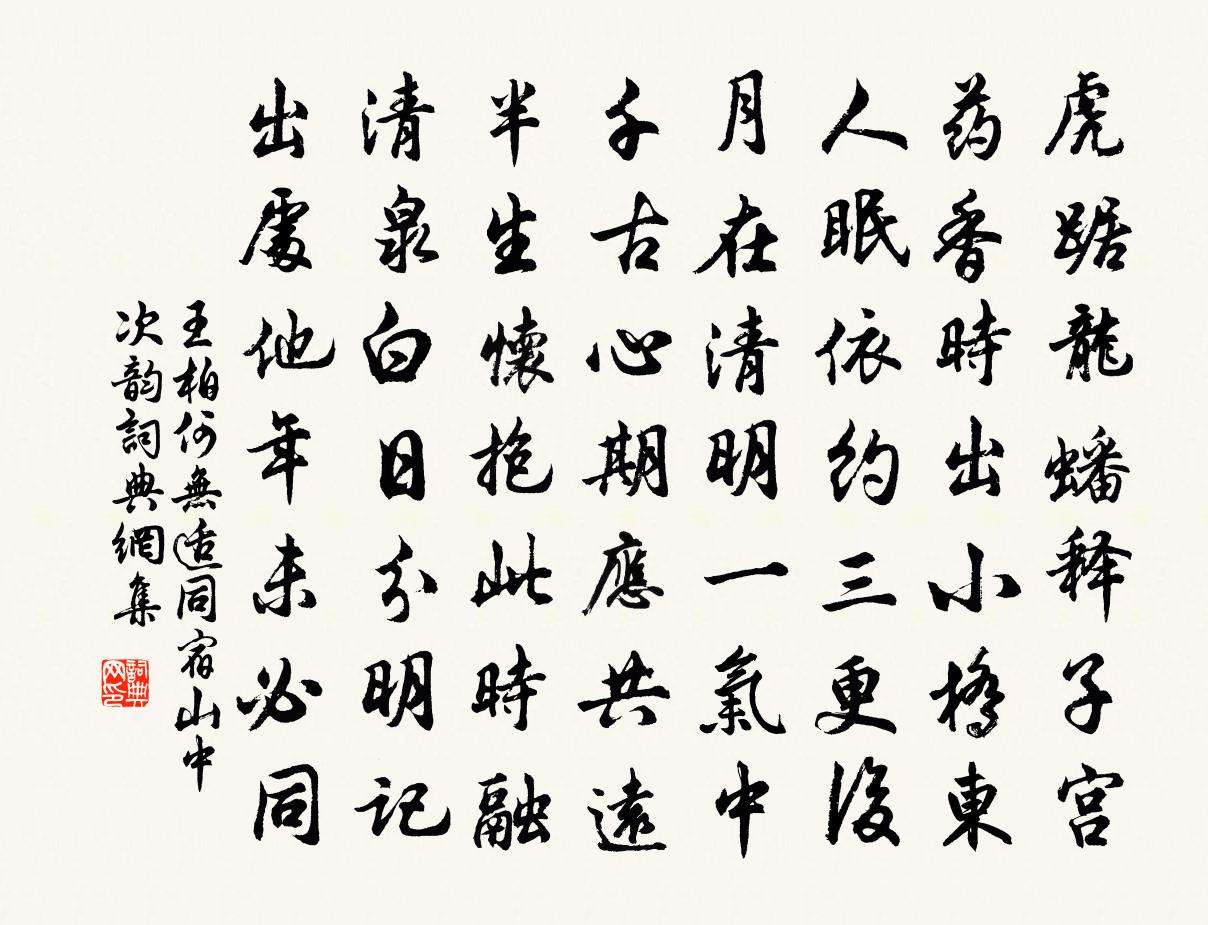 虎踞龍蟠释子宫
药香時出小橋東
人眠依約三更後
月在清明一氣中
千古心期應共遠
半生懷抱此時融
清泉白日分明記
出處他年未必同
王柏何無适同宿山中
次韵詞典網集
詞典网印